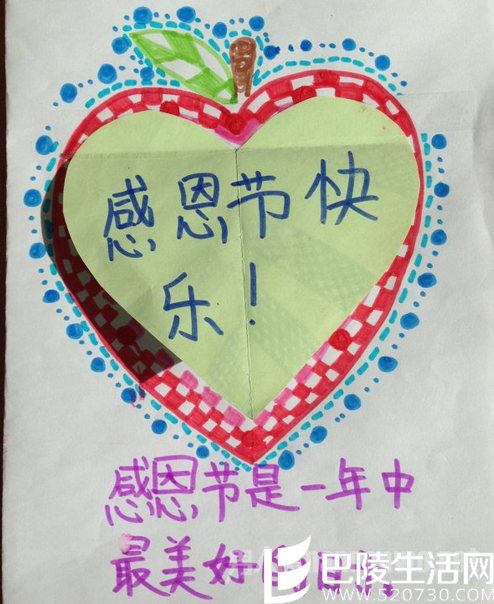 感恩节快
乐！
感恩节是一年中
最美好的
巴陵生活网
www.520730.com